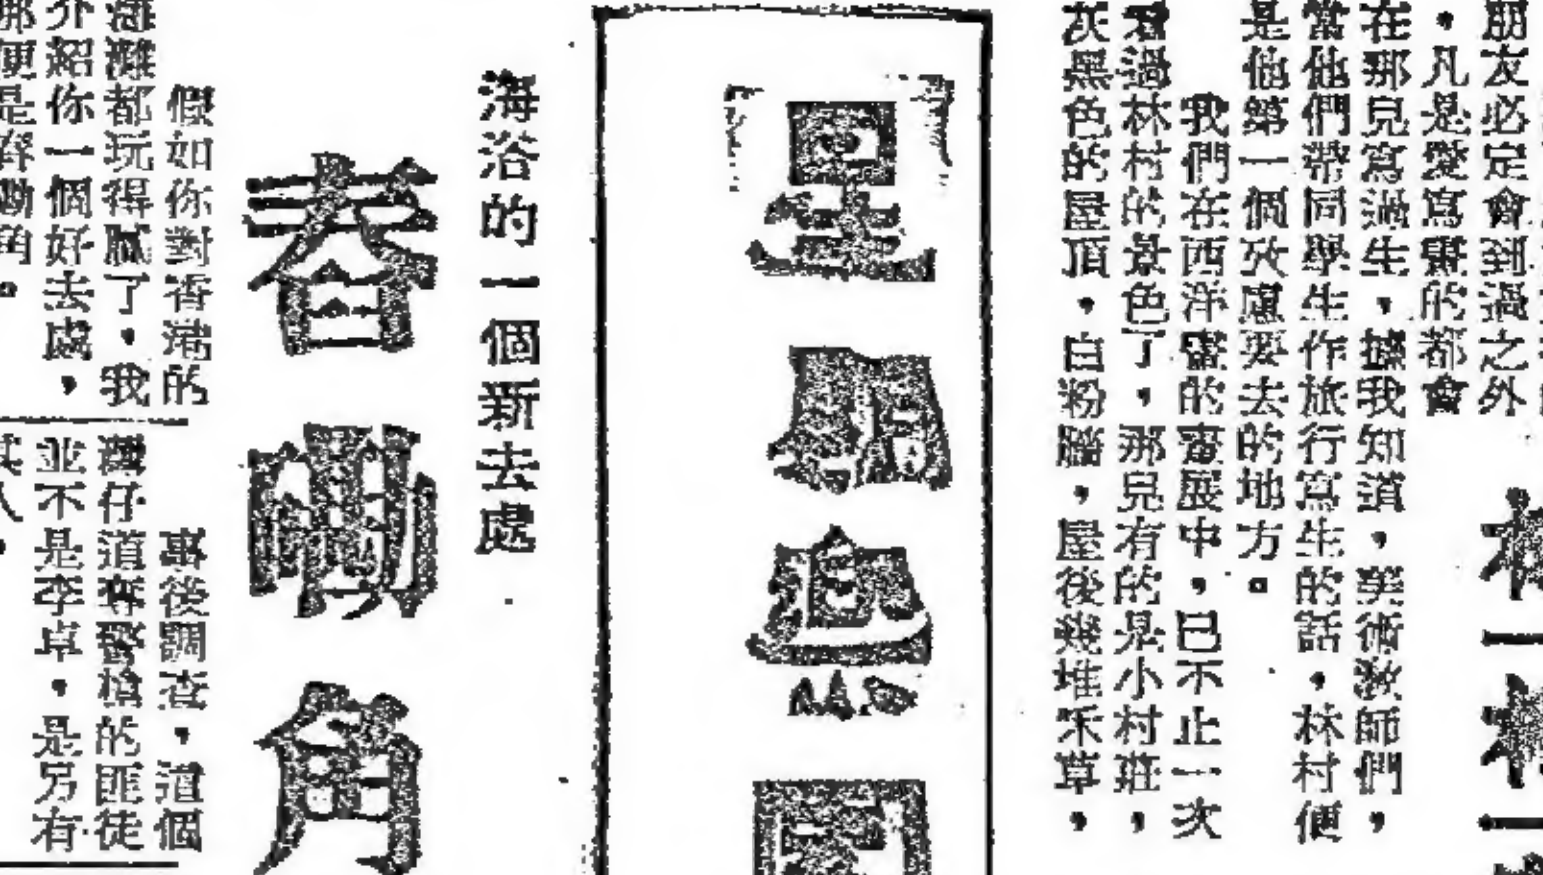 朋友必定會到過之外
，凡是愛寫畫的都會
在那兒寫過生，據我知道，美術敎師們，
當他們帶同學生作旅行寫生的話，林村便
是他第一個攷慮要去的地方。
我們在西洋畫的畫展中，已不止一次
看過林村的景色了，那兒有的是小村莊，
灰黑色的屋頂，白粉牆，屋後幾堆禾草，
海浴的一個新去處
角
假如你對香港的
海灘都玩得膩了，我
介紹你一個好去處，
事後調查，這個
灣仔道奪警槍的匪徒
並不是李卓，是另有
其人，